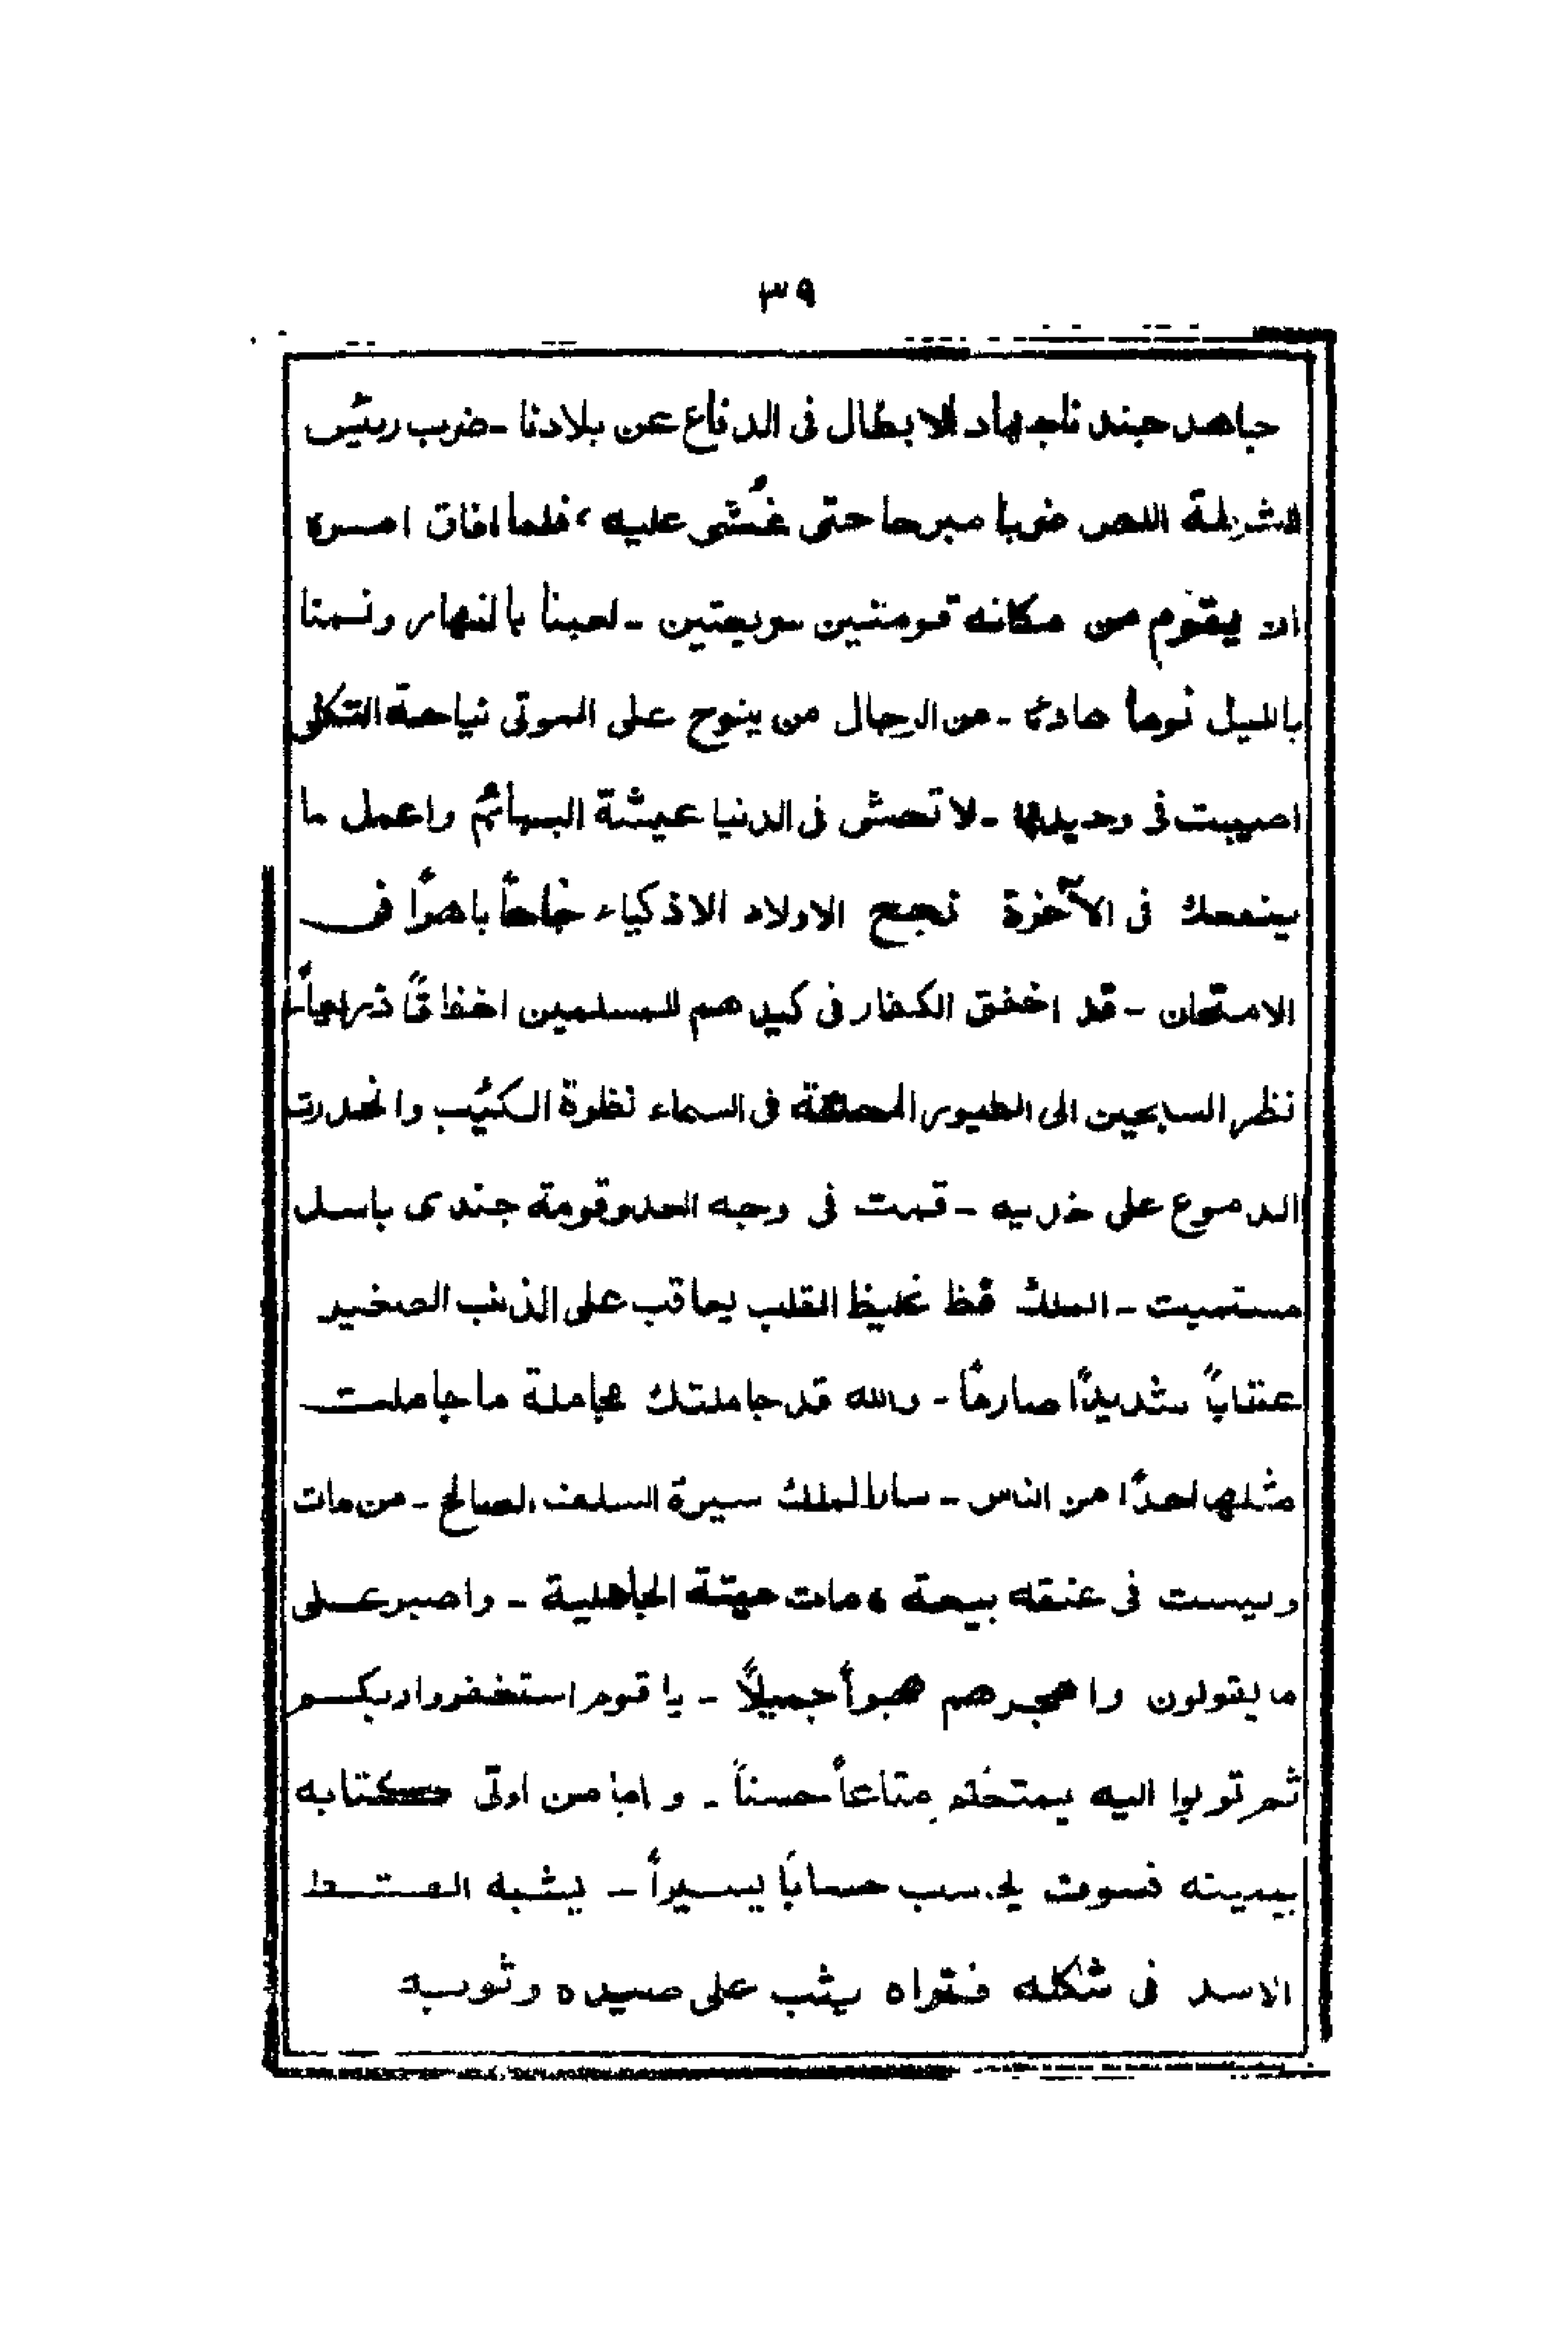 ٣٩
جاهد جندنا جهاد الابطال فى الدفاع عن بلادنا - ضرب رئيس
الشرطة اللص ضربا مبرحا حتى غُشى عليه، فلما افاق امره
ان يقوم من مكانه قومتين سريعتين - لعبنا بالنهار ونمنا
بالليل نوماً هادئا - من الرجال من ينوح على الموتى نياحة الثكلى
اصيبت فى وحيدها - لا تعش فى الدنيا عيشة البهائم واعمل ما
ينفعك فى الآخرة نجح الاولاد الاذكياء نجاحاً باهراً فى
الامتحان - قد اخفق الكفار فى كيدهم للمسلمين اخفاقاً ذريعاً
نظر السابحين الى الطيور المحلقة فى السماء نظرة الكئيب وانحدرت
الدموع على خديه - قمت فى وجه العدو قومة جندى باسل
مستميت - الملك فظ غليظ القلب يعاقب على الذنب الصغير
عقاباً شديداً صارماً - والله قد جاملتك مجاملة ما جاملت
مثلها احداً من الناس - سار الملك سيرة السلف الصالح - من مات
وليست فى عنقه بيعة، مات ميتة الجاهلية - واصبر على
ما يقولون واهجرهم هجراً جميلاً - يا قوم استغفروا ربكم
ثم توبوا اليه يمتعكم متاعاً حسناً - واما من اوتى كتابه
بيمينه فسوف يحاسب حساباً يسيراً - يشبه القط
الاسد فى شكله فتراه يثب على صيده وثوبه